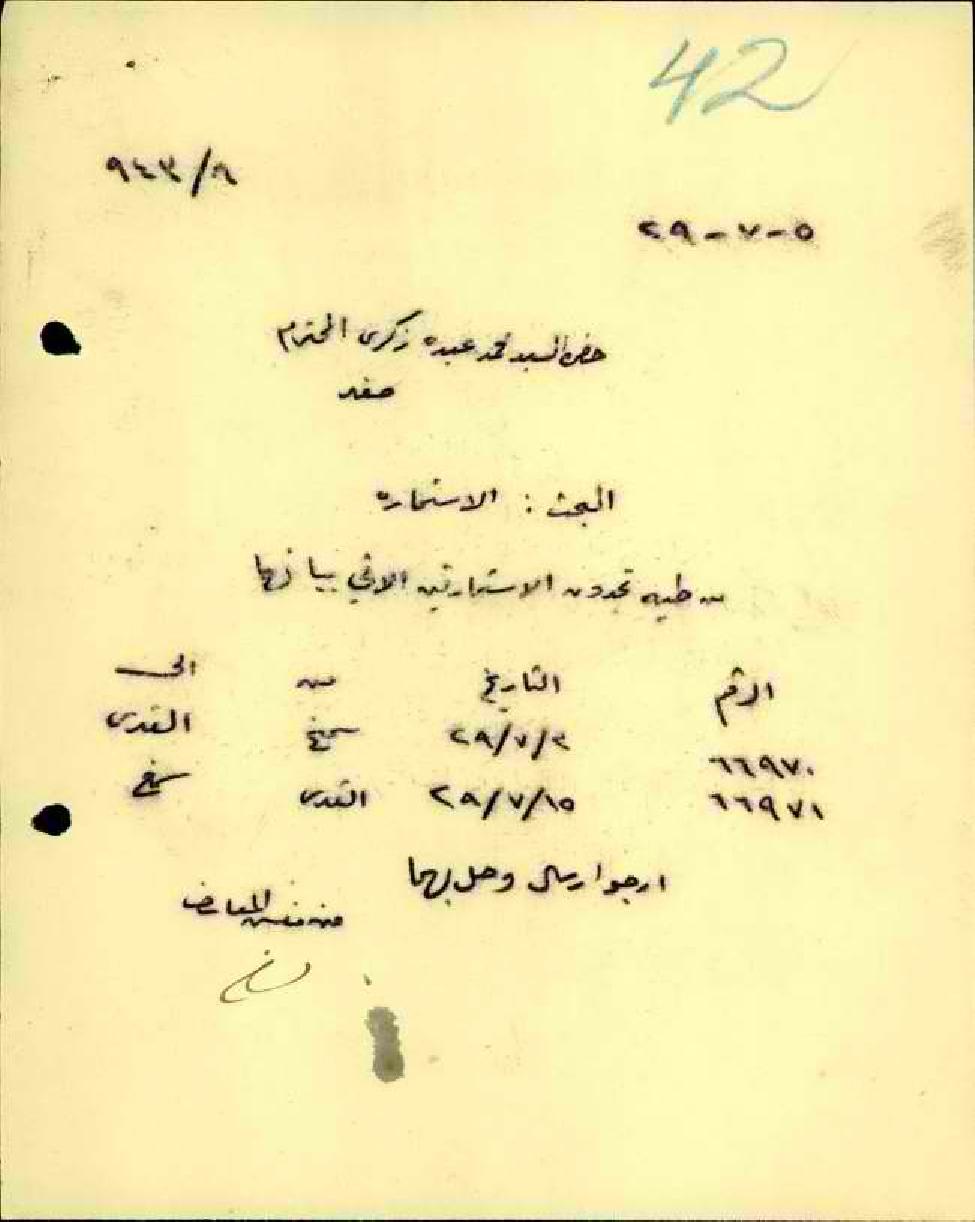 42
٩٤٣/٩
٥-٧-٢٩
حضرة السيد محمد عبده زكرى المحترم
صفد
البحث : الاستماره
من طيه تجدون الاستمارتين الاتي بيانهما
الرقم التاريخ من الى
٦٦٩٧٠ ٢٩/٧/٣ سمخ القدس
٦٦٩٧١ ٢٩/٧/١٥ القدس سمخ
ارجو ارسال وصل بهما
مفتش المعارف